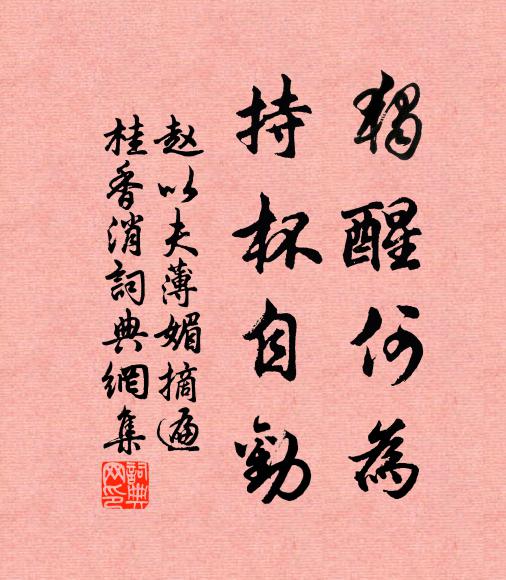 獨醒何為
持杯自勸
赵以夫薄媚摘遍
桂香消詞典網集
詞典網印